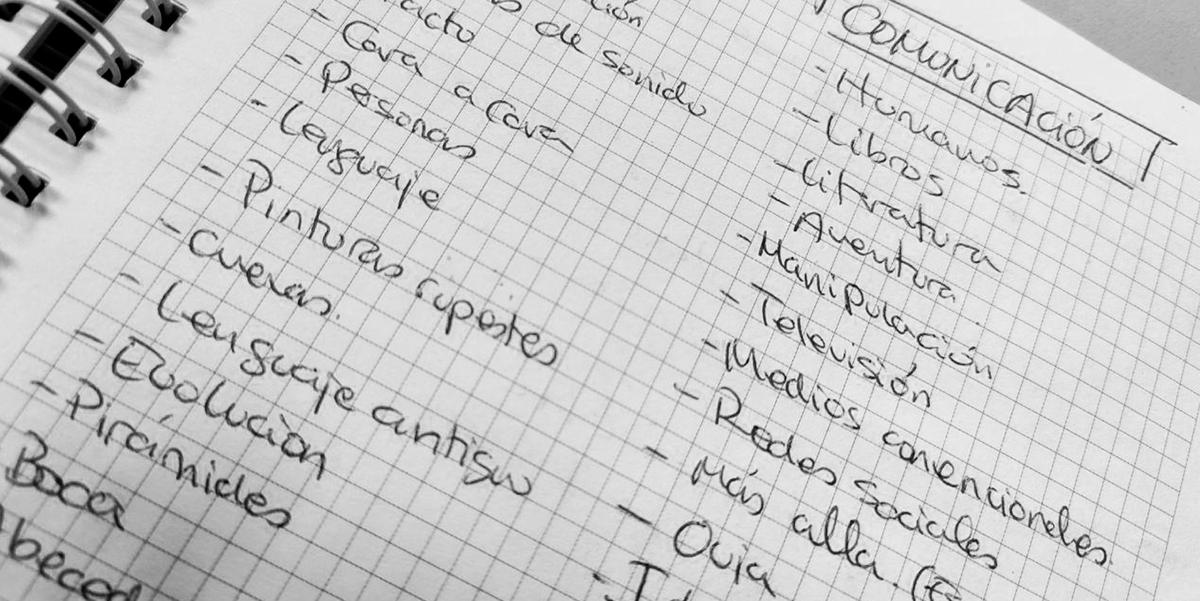 COMUNICACIÓN
de sonido
- Cara a Cara
- Personas
- Lenguaje
- Pinturas rupestes
- Cuevas.
- Lenguaje antiguo
- Evolucion
- Pirámides
Boca
- Humanos.
- Libros
- Literatura
- Aventura
- Manipulación
- Televisión
- Medios convencionales.
- Redes sociales
- Más alla.
- Ouija